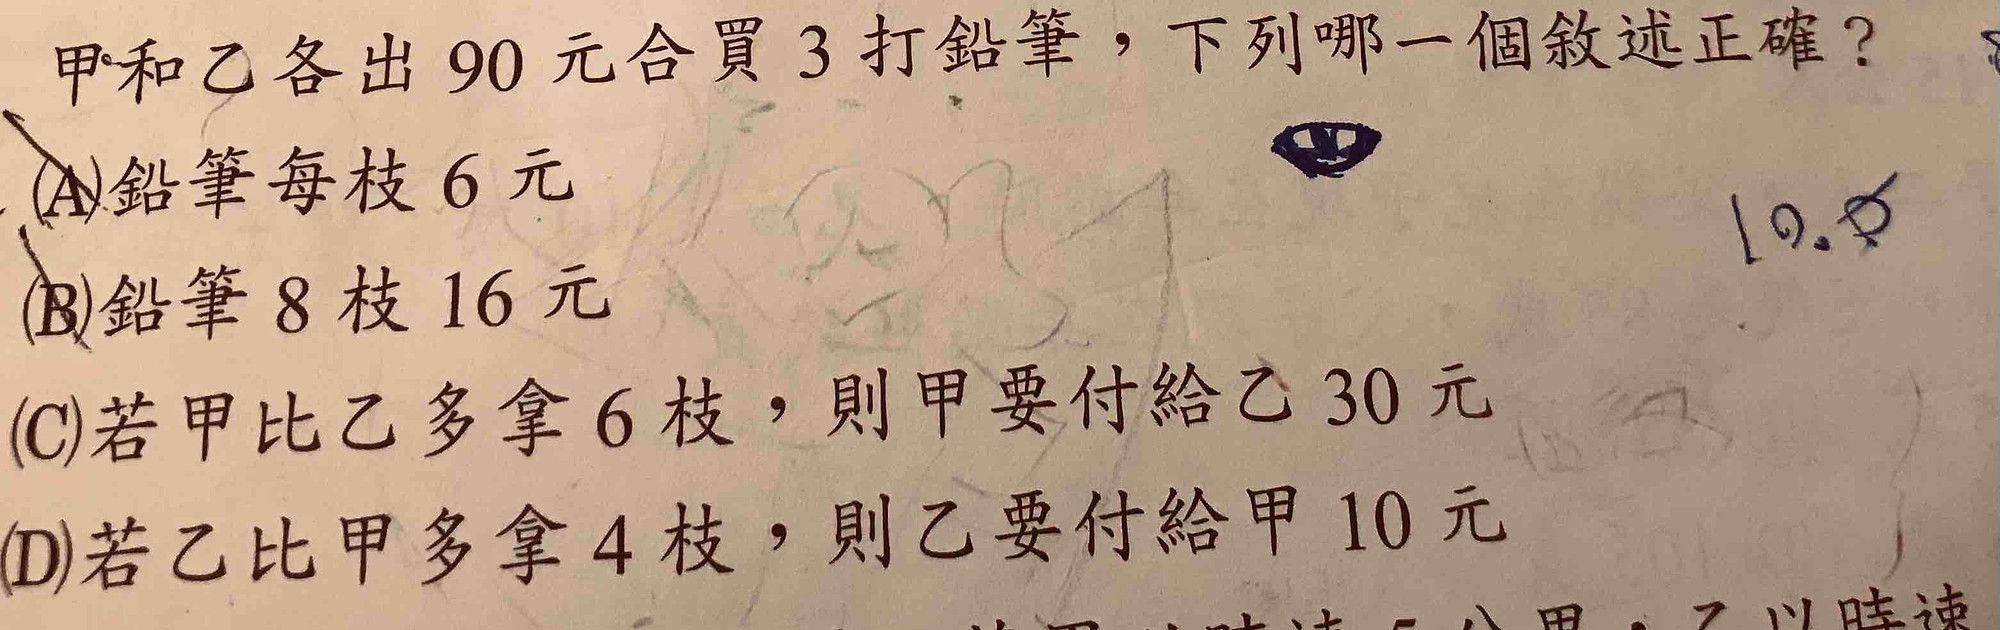 甲和乙各出 90 元合買 3 打鉛筆，下列哪一個敘述正確？
(A)鉛筆每枝 6 元
10.
(B)鉛筆 8 枝 16 元
(C)若甲比乙多拿 6 枝，則甲要付給乙 30 元
(D)若乙比甲多拿 4 枝，則乙要付給甲 10 元